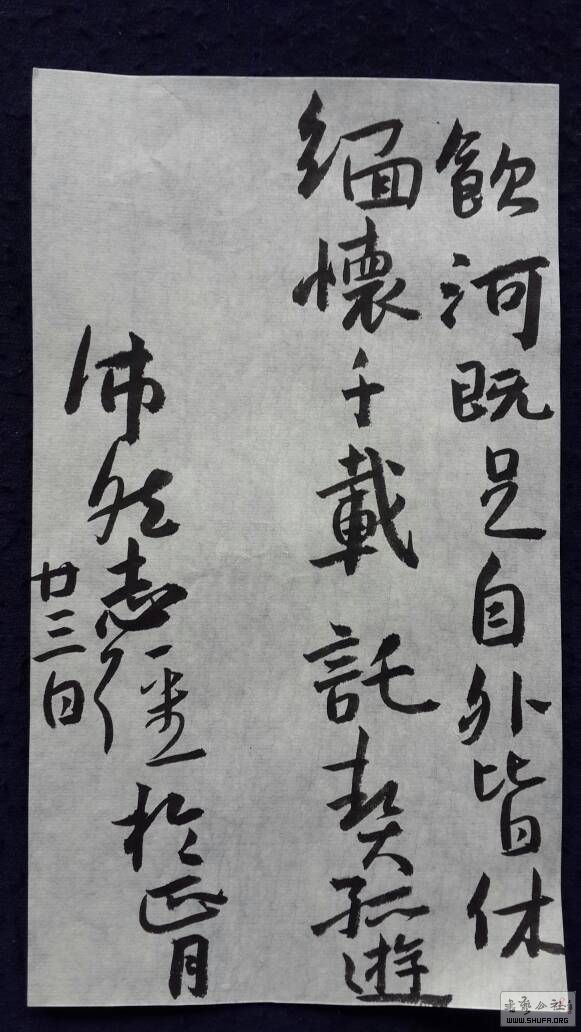 飲河既足自外皆休
緬懷千載託契孤遊
沛然志仁於正月
廿三日
书艺公社
WWW.SHUFA.ORG